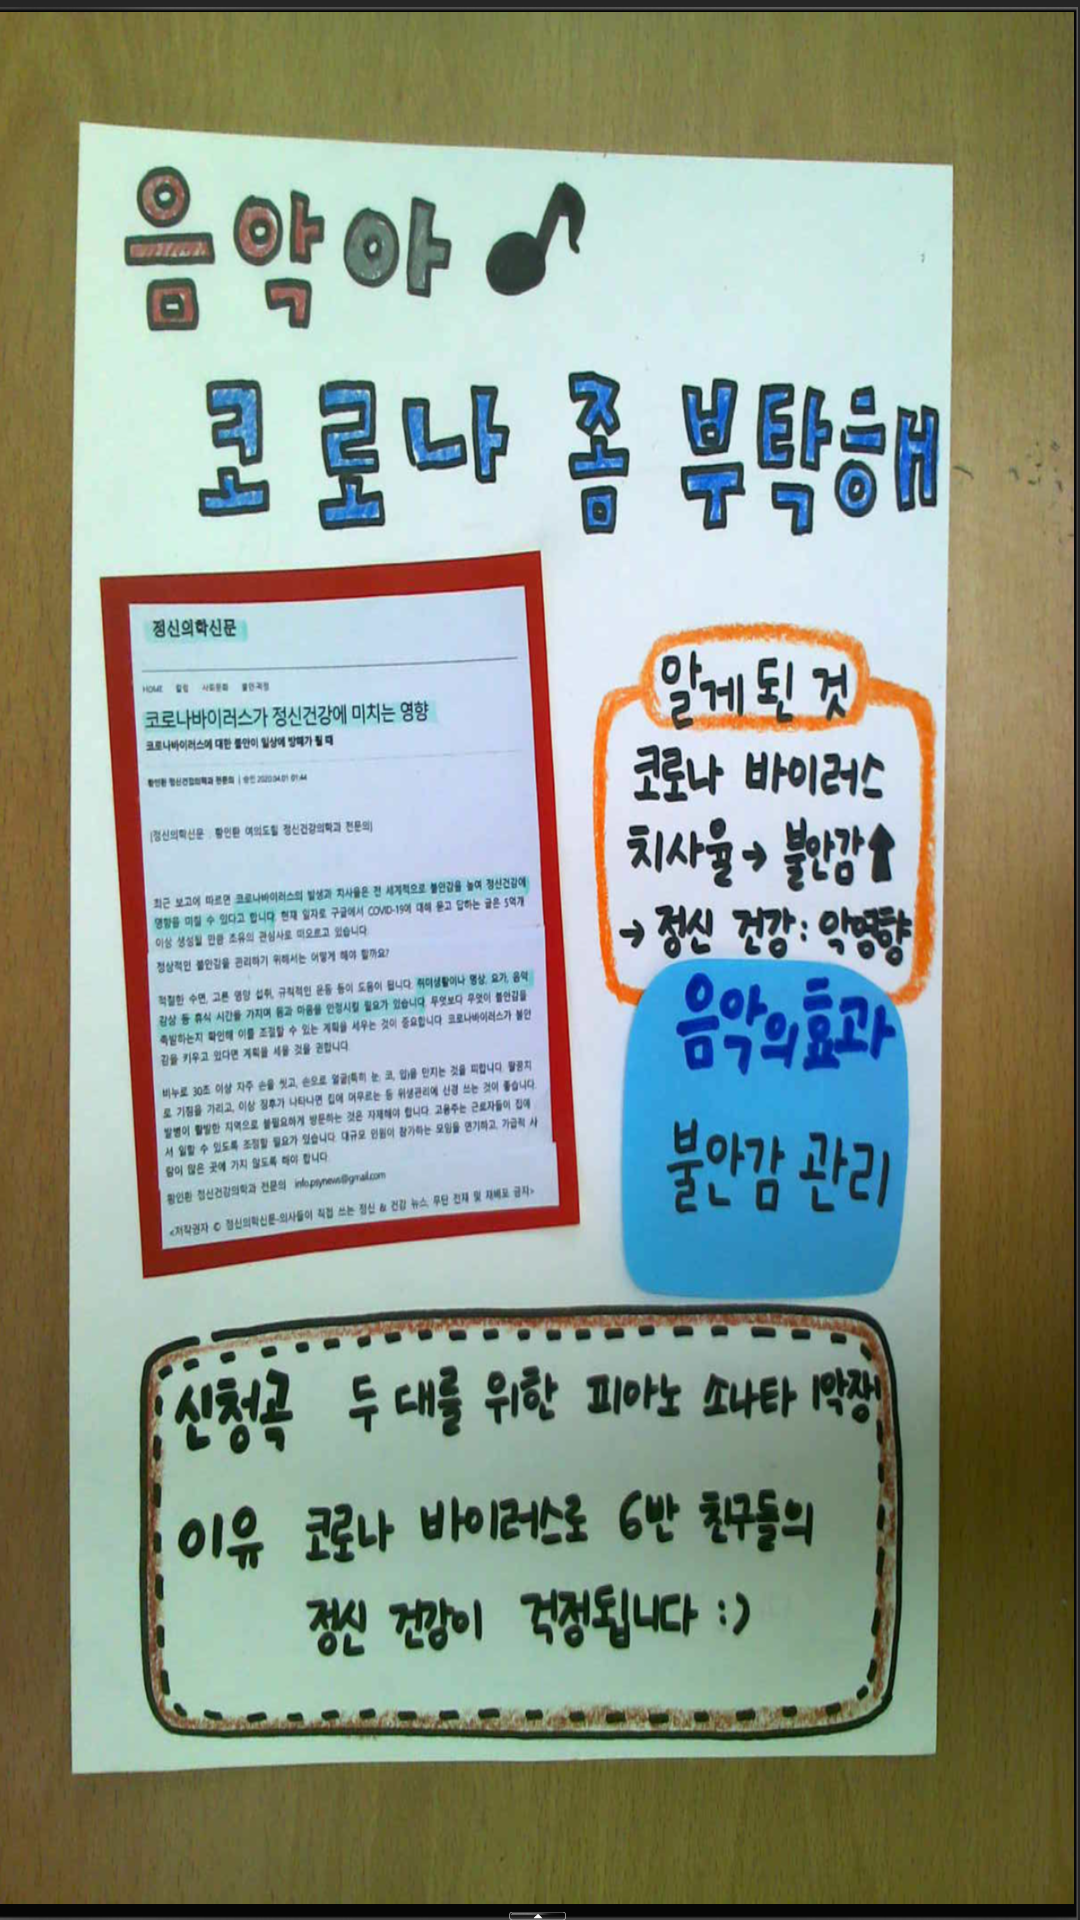 음악아
코로나 좀 부탁해
정신의학신문
HOME 칼럼 사회문화
코로나바이러스가 정신건강에 미치는 영향
코로나바이러스에 대한 불안이 일상에 방해가 될 때
황인환 정신건강의학과 전문의 | 승인 2020.04.01 01:44
[정신의학신문 : 황인환 여의도힐 정신건강의학과 전문의]
최근 보고에 따르면 코로나바이러스의 발생과 치사율은 전 세계적으로 불안감을 높여 정신건강에
영향을 미칠 수 있다고 합니다. 현재 일자로 구글에서 COVID-19에 대해 묻고 답하는 글은 5억개
이상 생성될 만큼 초유의 관심사로 떠오르고 있습니다.
정상적인 불안감을 관리하기 위해서는 어떻게 해야 할까요?
적절한 수면, 고른 영양 섭취, 규칙적인 운동 등이 도움이 됩니다. 취미생활이나 명상, 요가, 음악
감상 등 휴식 시간을 가지며 몸과 마음을 안정시킬 필요가 있습니다. 무엇보다 무엇이 불안감을
촉발하는지 확인해 이를 조절할 수 있는 계획을 세우는 것이 중요합니다. 코로나바이러스가 불안
감을 키우고 있다면 계획을 세울 것을 권합니다.
비누로 30초 이상 자주 손을 씻고, 손으로 얼굴(특히 눈, 코, 입)을 만지는 것을 피합니다. 팔꿈치
로 기침을 가리고, 이상 징후가 나타나면 집에 머무르는 등 위생관리에 신경 쓰는 것이 좋습니다.
발병이 활발한 지역으로 불필요하게 방문하는 것은 자제해야 합니다. 고용주는 근로자들이 집에
서 일할 수 있도록 조정할 필요가 있습니다. 대규모 인원이 참가하는 모임을 연기하고, 가급적 사
람이 많은 곳에 가지 않도록 해야 합니다.
황인환 정신건강의학과 전문의 info.psynews@gmail.com
<저작권자 © 정신의학신문-의사들이 직접 쓰는 정신 & 건강 뉴스, 무단 전재 및 재배포 금지>
알게 된 것
코로나 바이러스
치사율 → 불안감 ⬆
→ 정신 건강 : 악영향
음악의 효과
불안감 관리
신청곡 두 대를 위한 피아노 소나타 1악장
이유 코로나 바이러스로 6반 친구들의
정신 건강이 걱정됩니다 :)